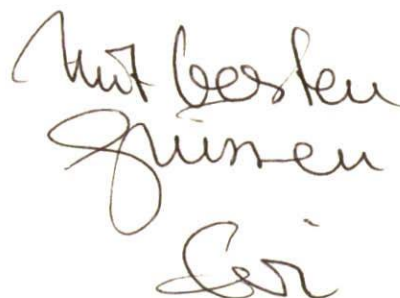 Mit besten
Grüssen